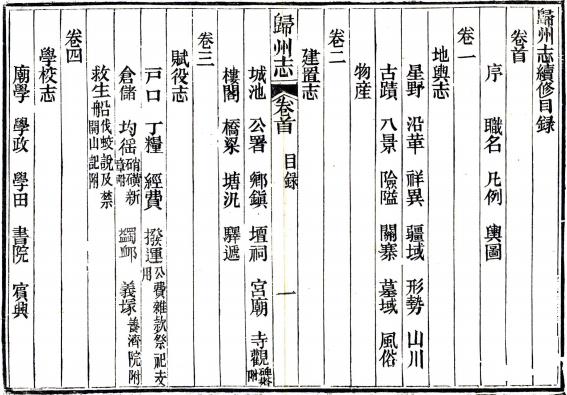 歸州志續修目錄
卷首
序 職名 凡例 輿圖
卷一
地輿志
星野 沿革 祥異 疆域 形勢 山川
古蹟 八景 險隘 關寨 墓域 風俗
物產
卷二
建置志
歸州志 卷首 目錄 一
城池 公署 鄉鎮 壇祠 宮廟 寺觀碑塔附
樓閣 橋梁 塘汛 驛遞
卷三
賦役志
戶口 丁糧 經費 撥運公費雜款祭祀支用
倉儲 均徭硝磺新章附 蠲卹 義塚養濟院附
救生船伐蛟說及禁開山記附
卷四
學校志
廟學 學政 學田 書院 賓興